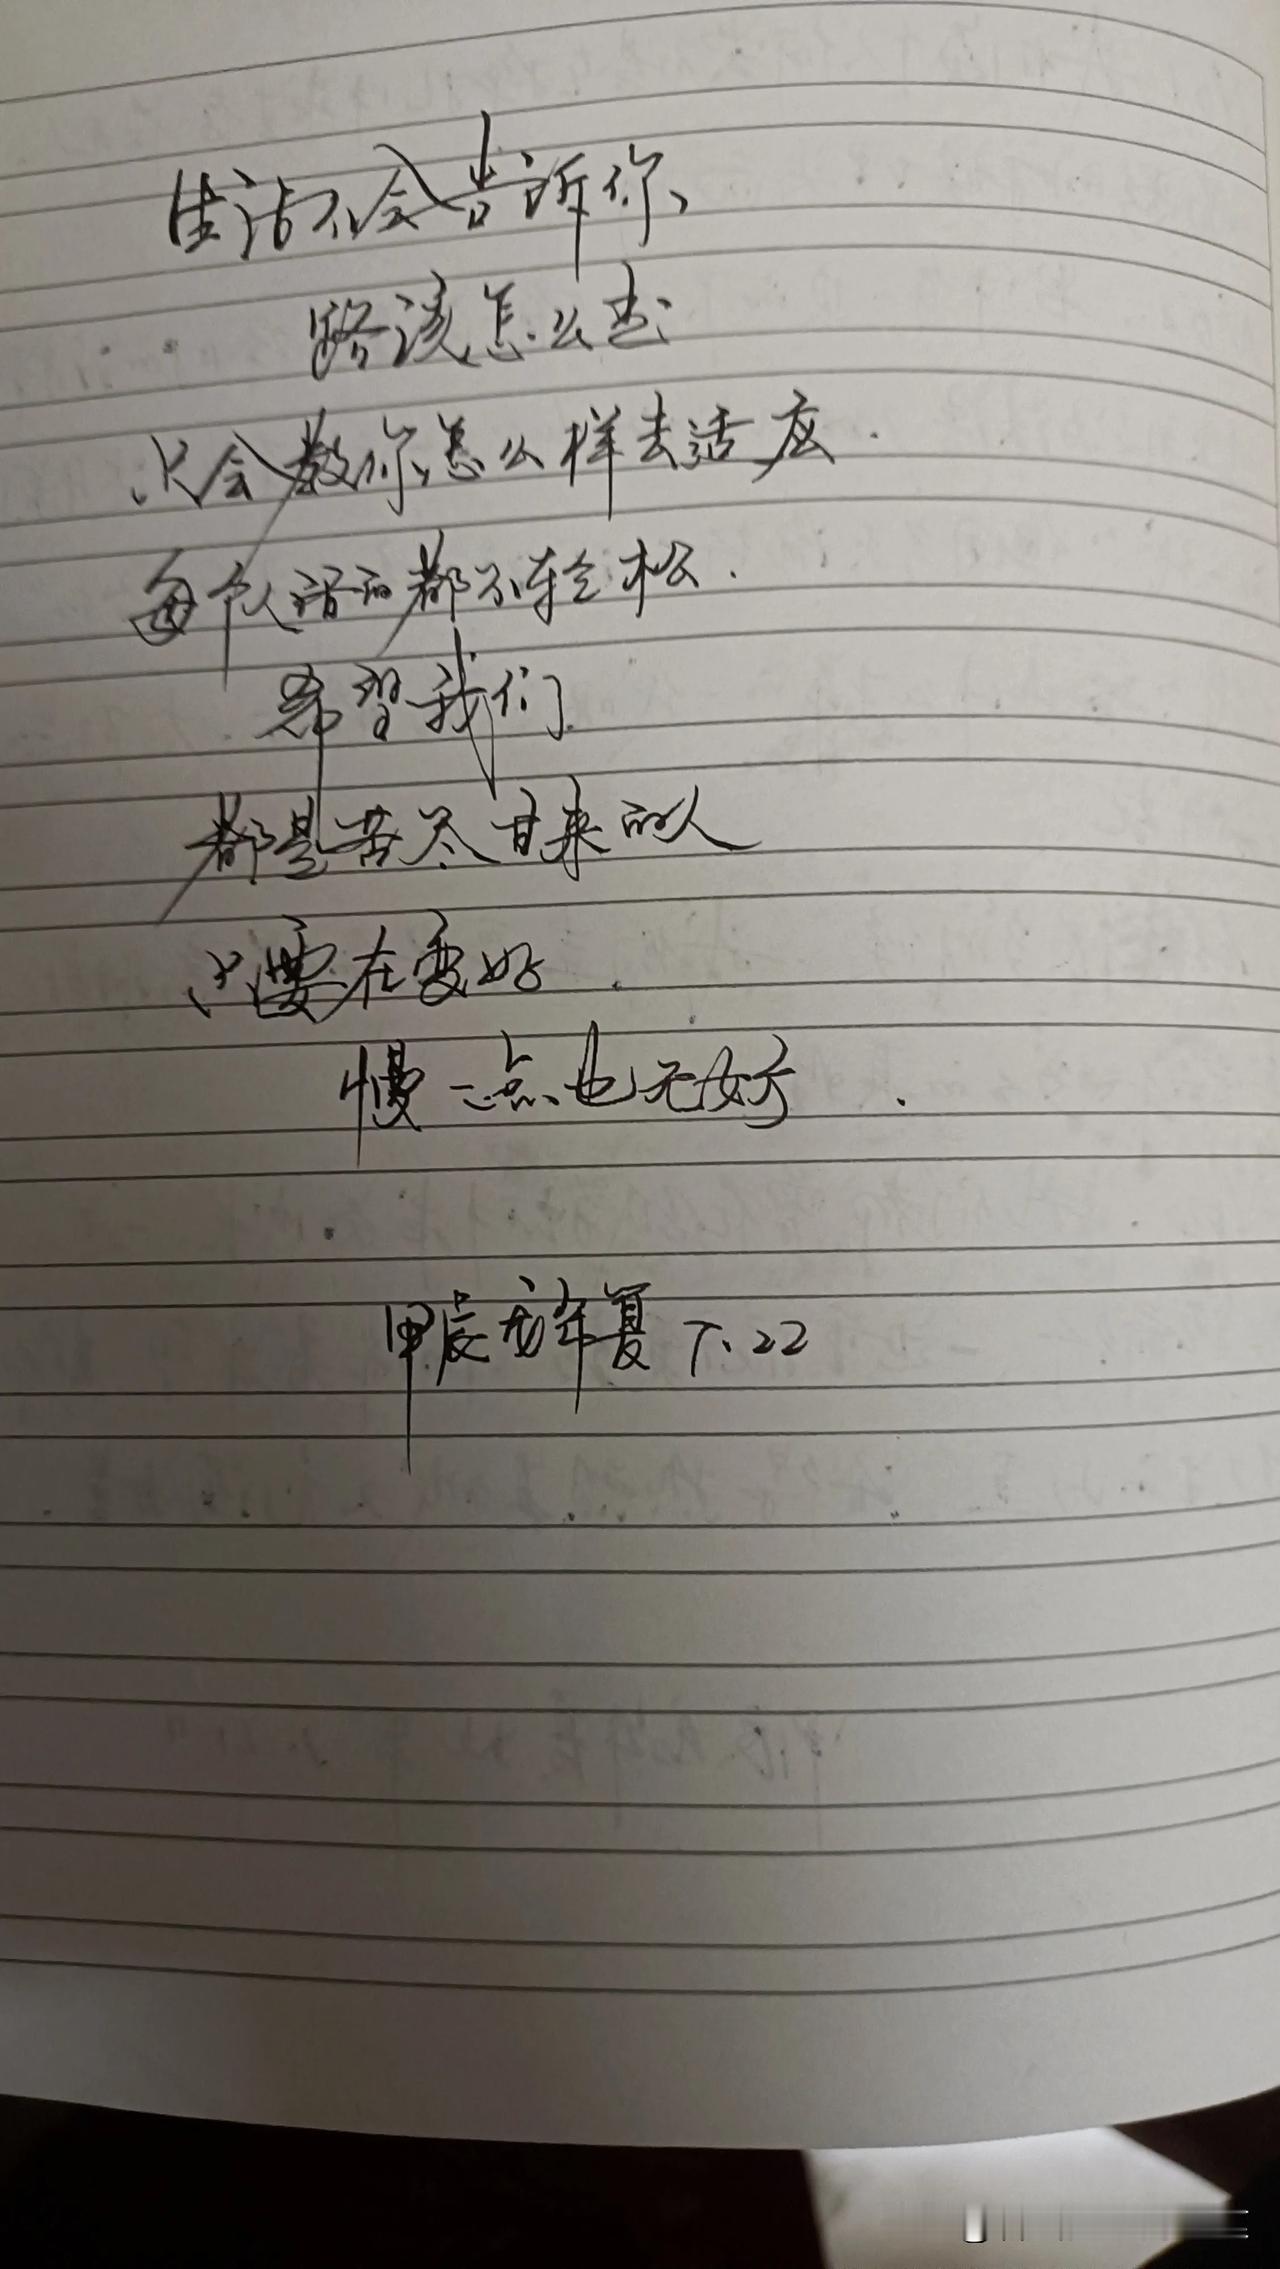 生活不会告诉你、
路该怎么走
只会教你怎么样去适应.
每个人活的都不轻松.
希望我们
都是苦尽甘来的人
只要在变好.
慢一点也无妨.
甲辰龙年夏 7.22